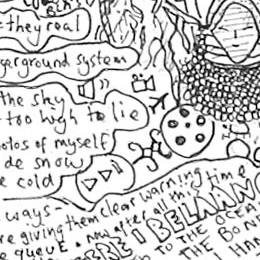 they real
erground system
the sky
too high to lie
otos of myself
de snow
e cold
ways -
re giving them clear warning time
e queue. now after all this
ERE I BELONG
TO THE OCEA
THE BON
I HAN